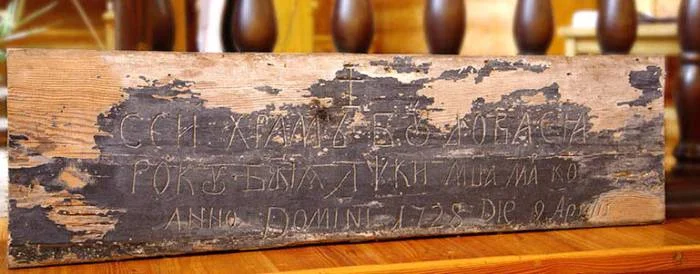 СЕИ ХРАМЪ БѸДОВАСІА
РОКУ БЖІА ЛУКИ МЦА МА КО
ANNO DOMINI 1728 DIE 9 Aprilis